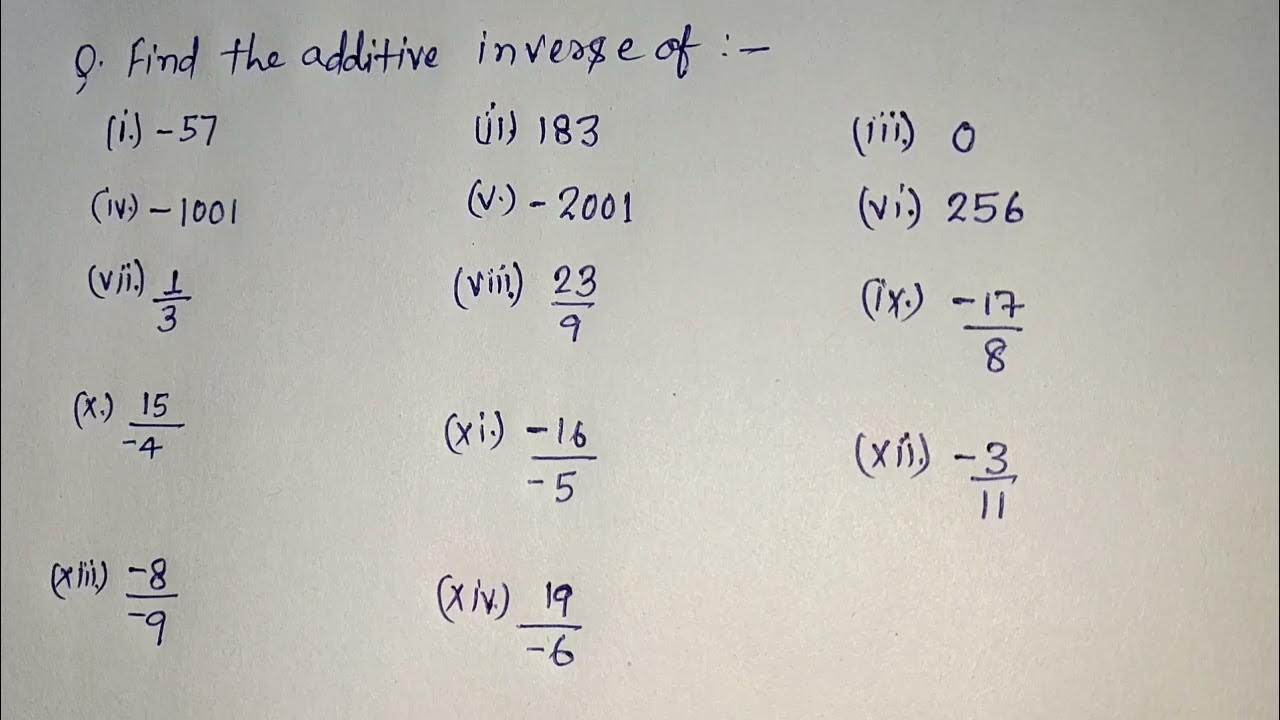 Q. Find the additive inverse of :-
(i.) -57 (ii) 183 (iii.) 0
(iv.) -1001 (v.) -2001 (vi.) 256
(vii.) 1/3 (viii.) 23/9 (ix.) -17/8
(x.) 15/-4 (xi.) -16/-5 (xii.) -3/11
(xiii.) -8/-9 (xiv.) 19/-6